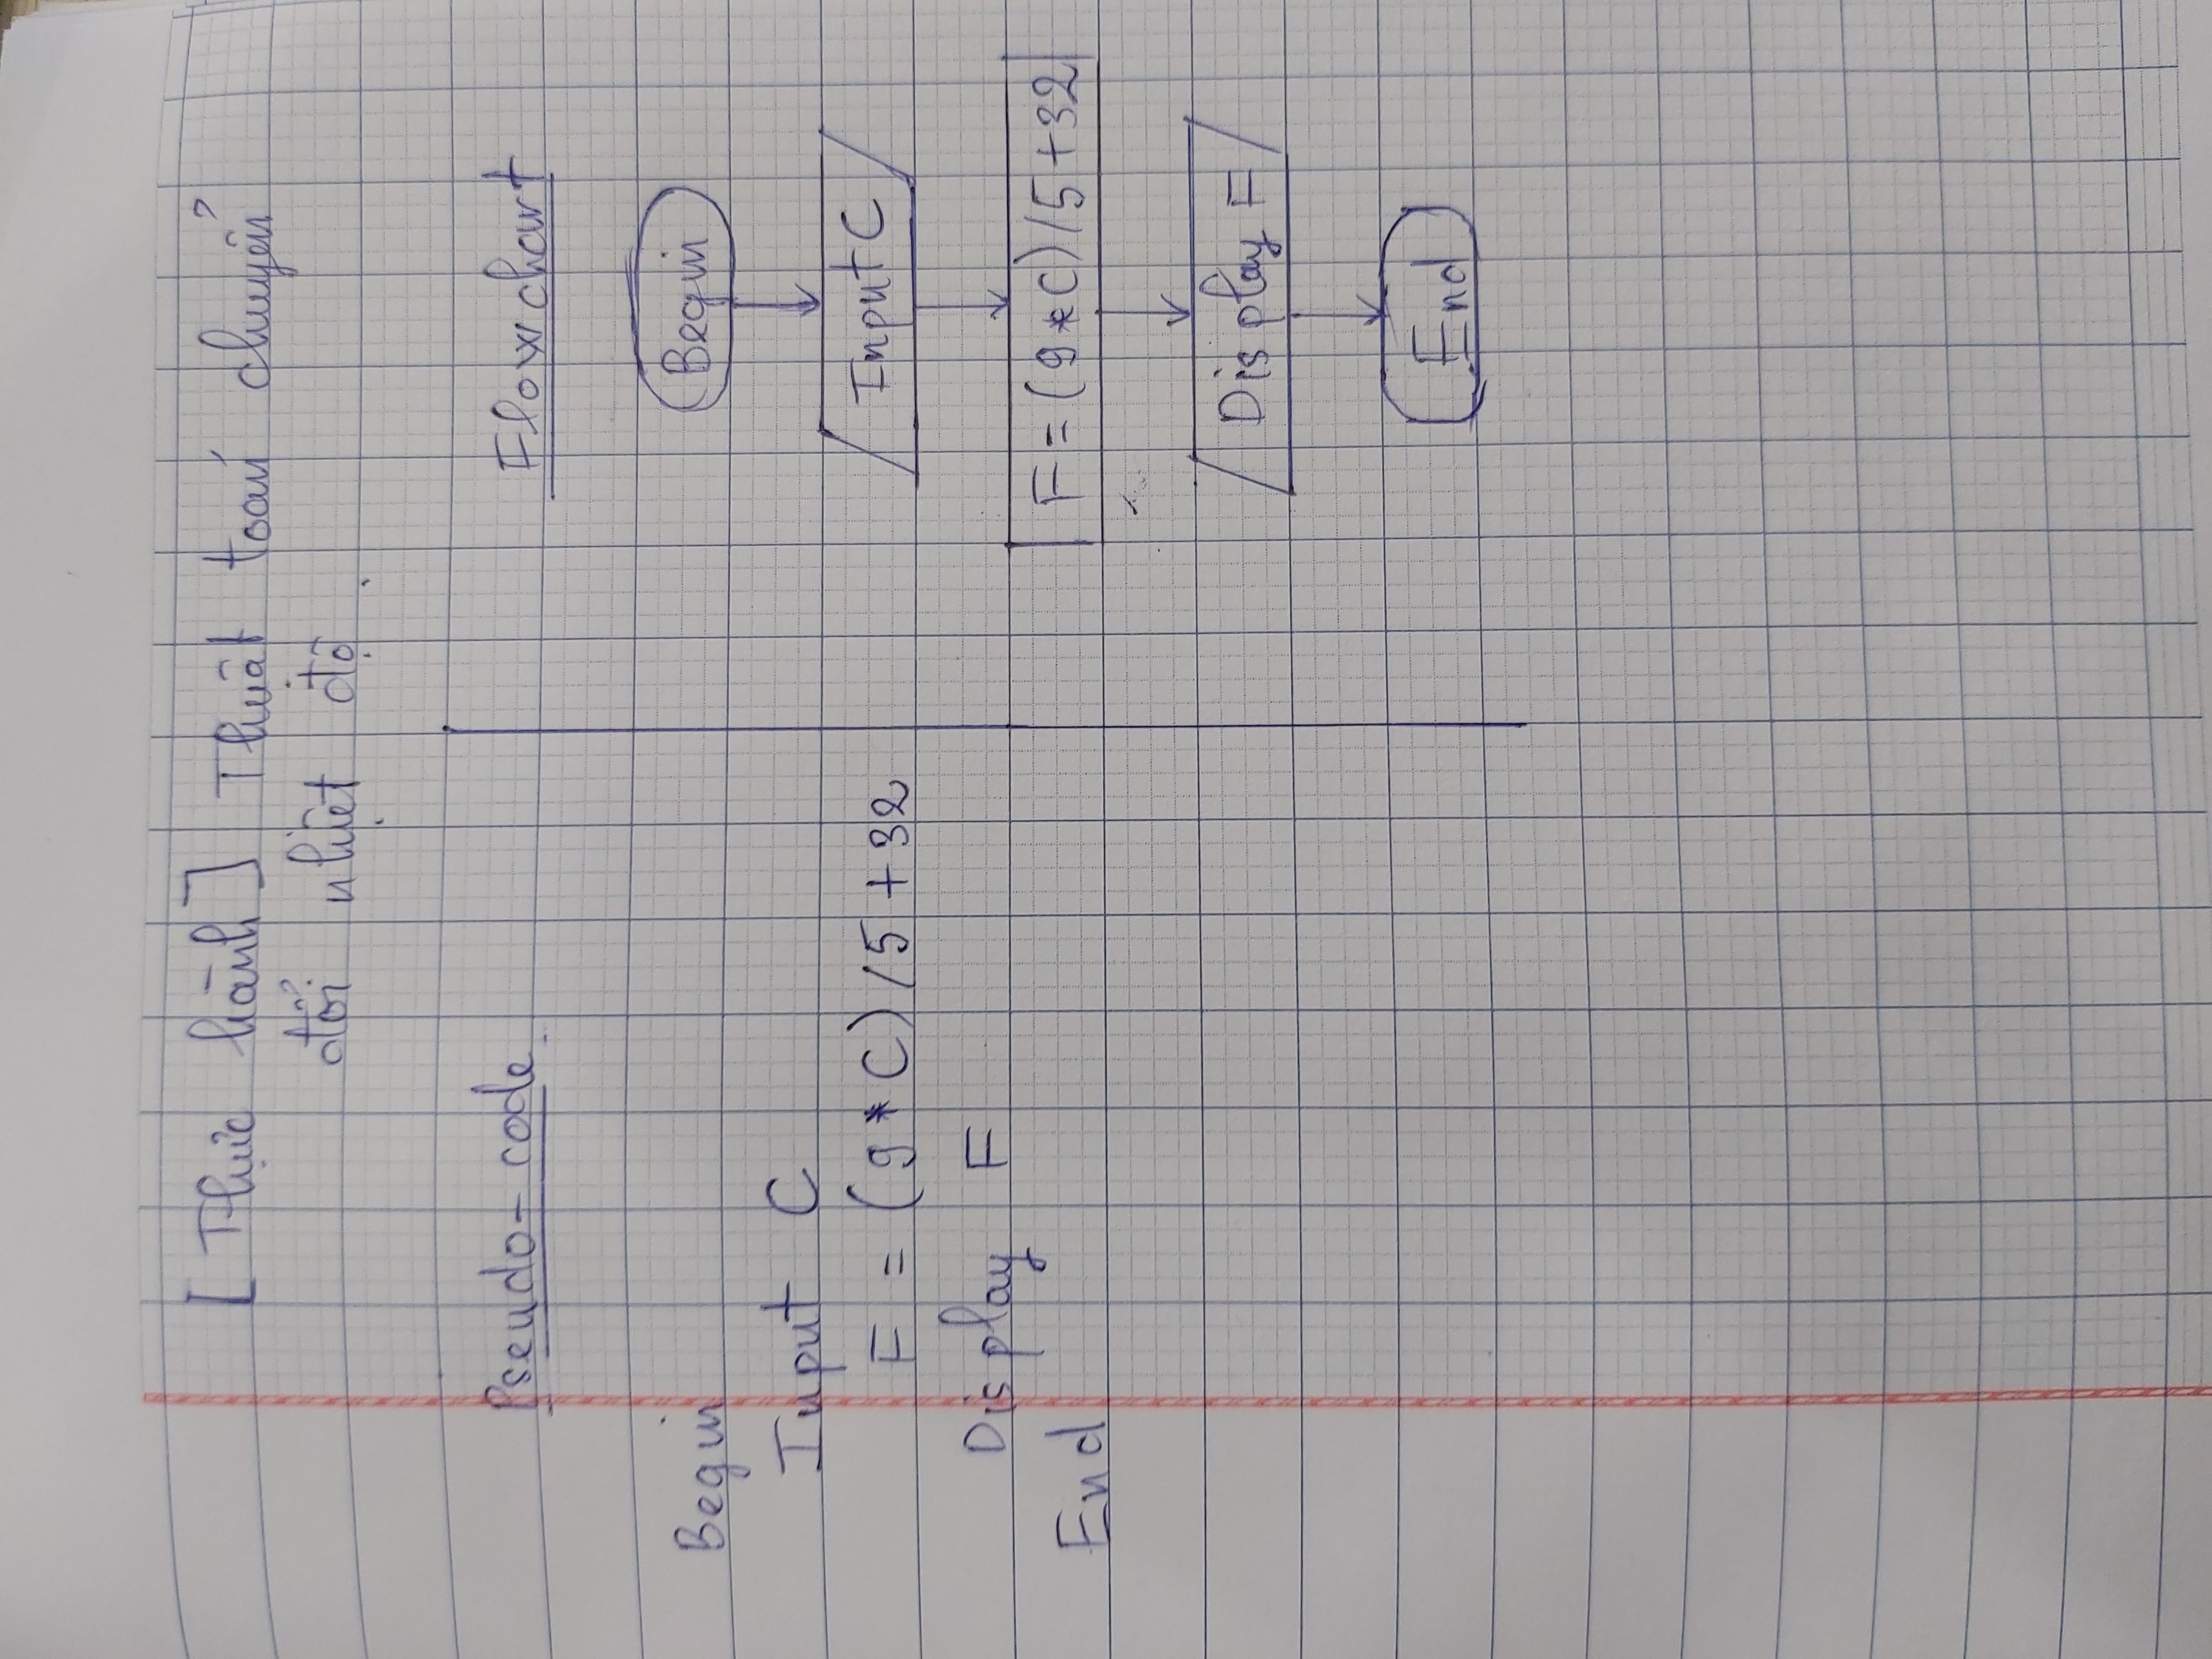 [Thực hành] Thuật toán chuyển
đổi nhiệt độ.
Pseudo-code
Begin
Input C
F = (9 * C) / 5 + 32
Display F
End
Flowchart
Begin
Input C
F = (9 * C) / 5 + 32
Display F
End